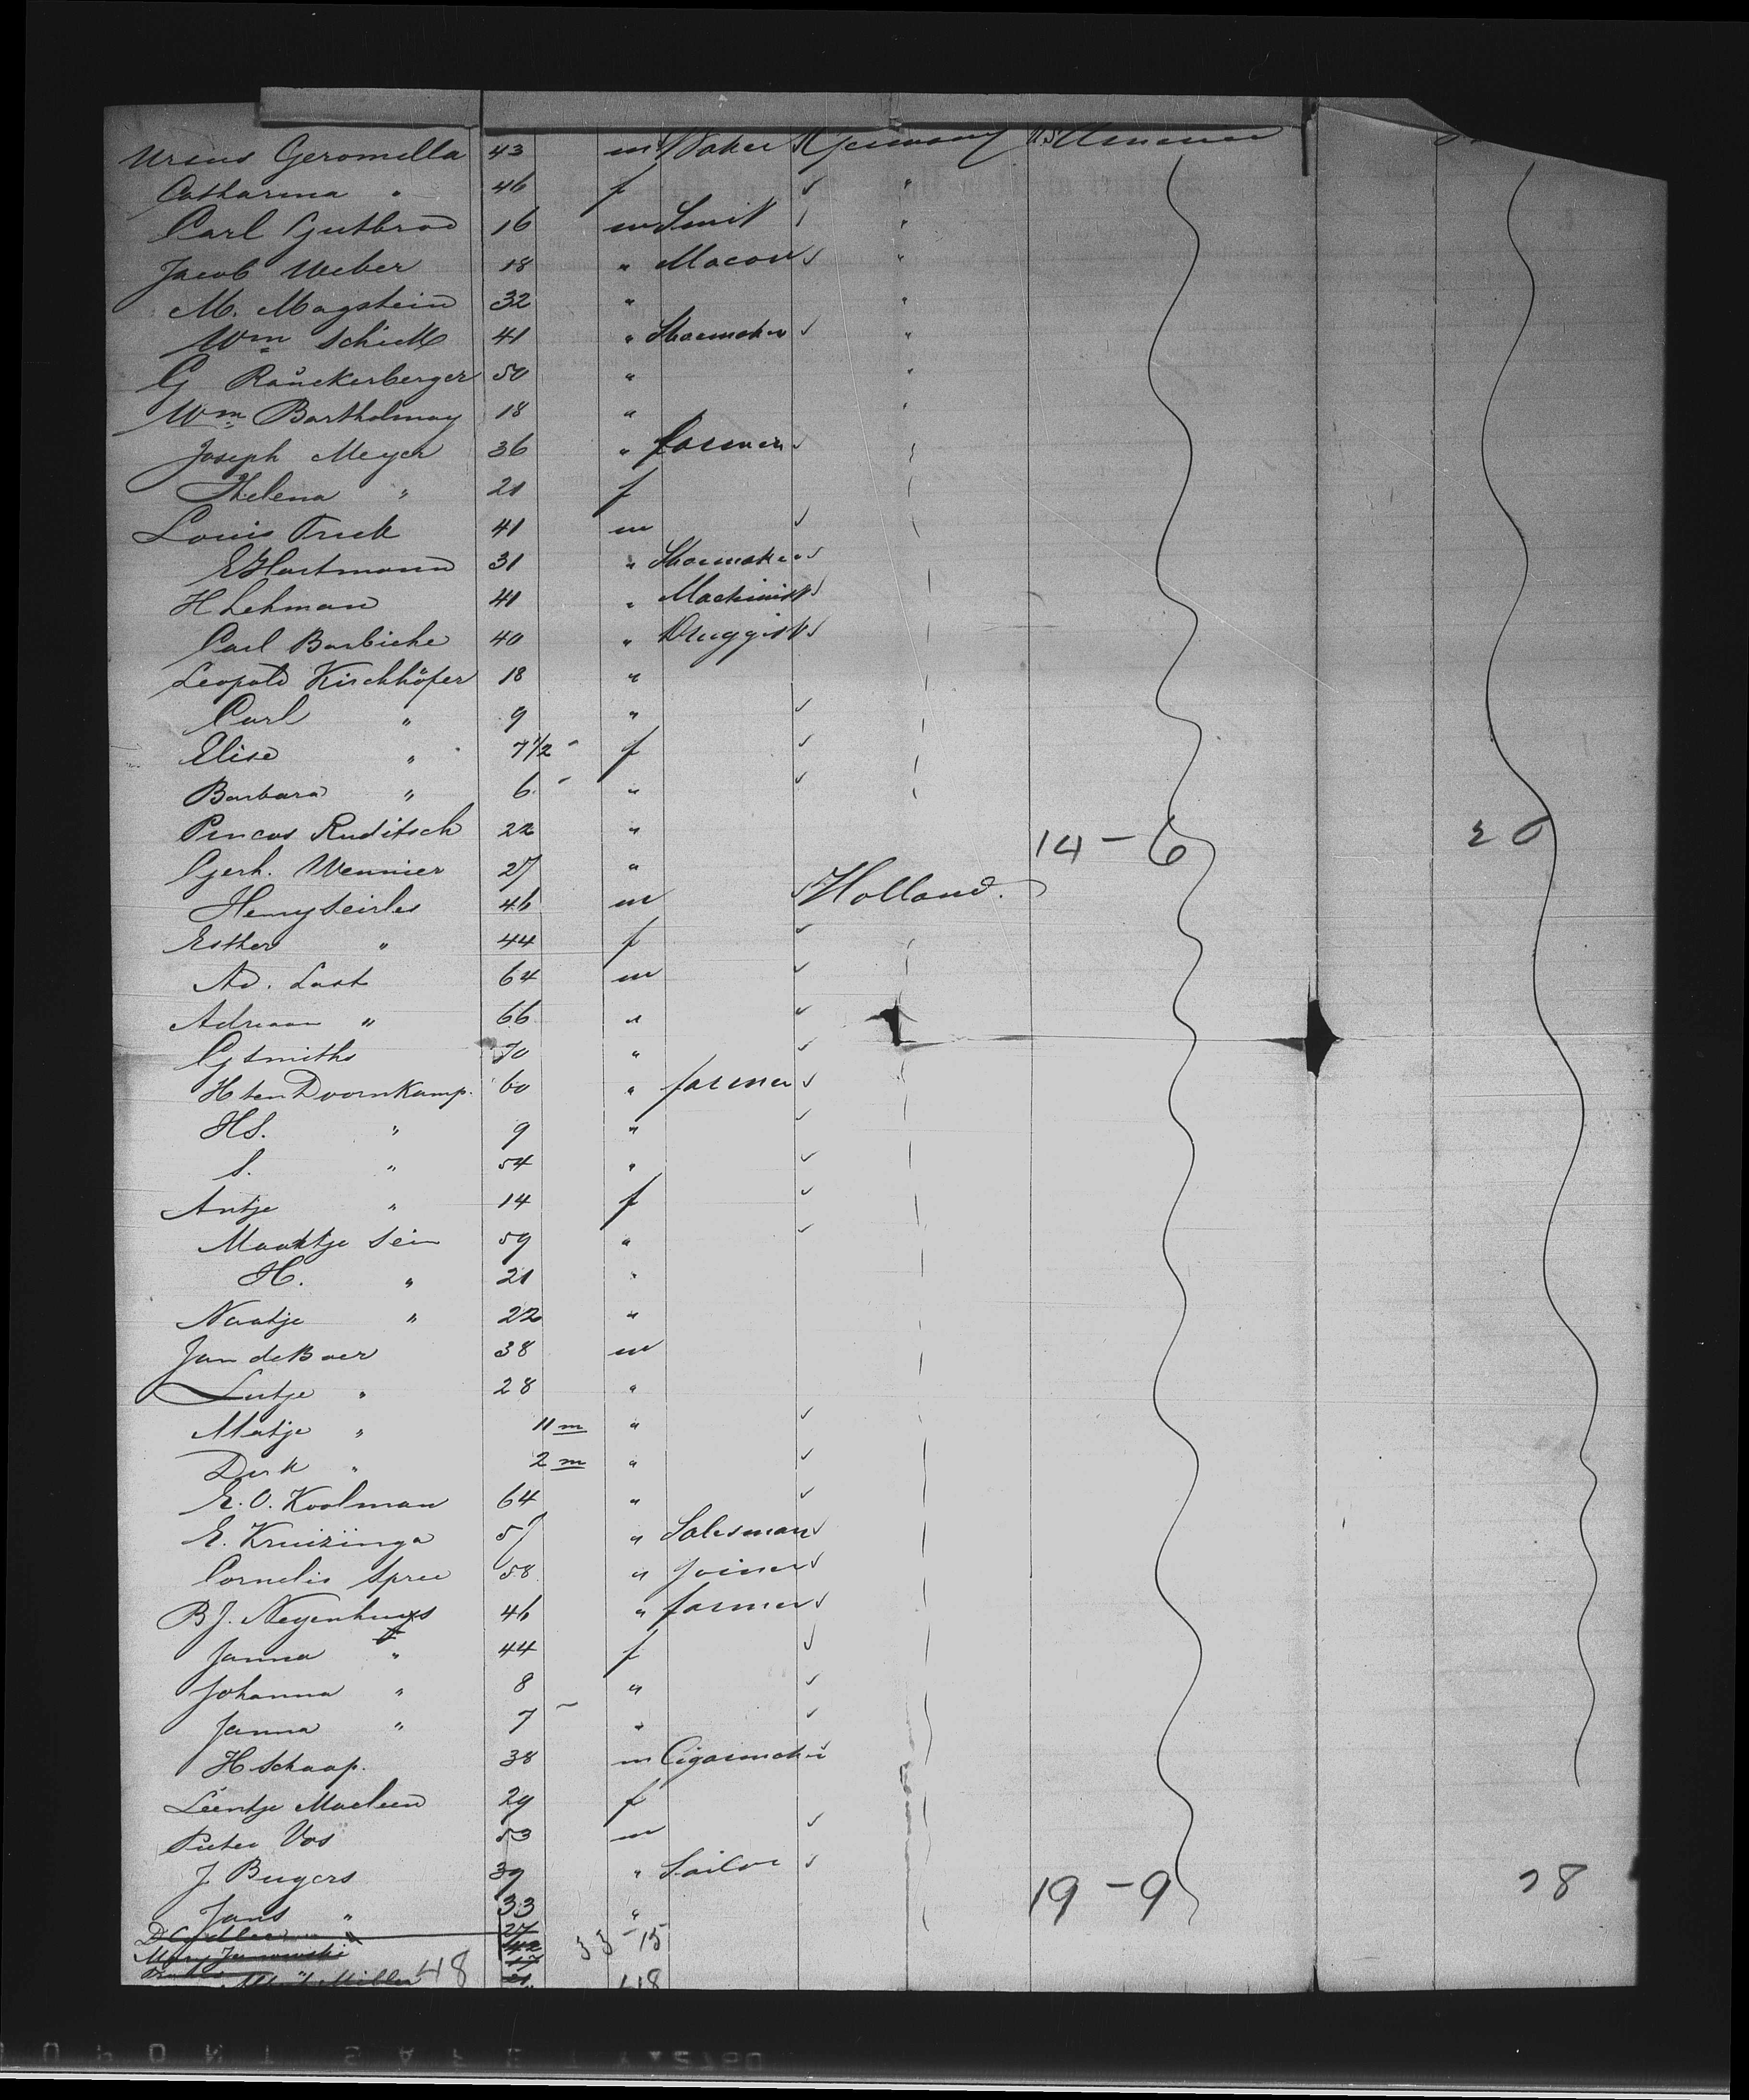 Ursus Geromella 43 m Baker Germany US America
Catharina " 46 f "
Carl Gutbrod 16 m Smit "
Jacob Weber 18 " Macon "
M. Magstein 32 " "
Wm Schick 41 " Shoemaker "
G Rauckerberger 50 " "
Wm Bartholmay 18 " "
Joseph Meyer 36 " farmer
Helena " 21 f
Louis Truck 41 m
E Hartmann 31 " Shoemaker
H Lehman 41 " Machinist
Carl Barbiche 40 " Druggist
Leopold Kirchhöfer 18 "
Carl " 9 "
Elise " 7 1/2 f
Barbara " 6 "
Pincas Ruditsch 22 "
14 - 6 20
Gerh. Wennier 27 "
Henry Seirles 46 m Holland.
Esther " 44 f
Ad. Last 64 m
Adriaan " 66 "
G Smiths 70 "
H ten Doornkamp. 60 " farmer
HS. " 9 "
S. " 54 "
Antje " 14 f
Maaktje Sein 59 "
H. " 21 "
Naatje " 22 "
Jan de Boer 38 m
Lutje " 28 "
Matje " 11 m "
Derk " 2 m "
E. O. Koolman 64 "
E. Kruizinga 57 " Salesman
Cornelis Spree 58 " Joiner
B J. Negenhuys 46 " farmer
Janna " 44 f
Johanna " 8 "
Janna " 7 "
H Schaap. 38 m Cigarmaker
Leentje Macleen 29 f
Pieter Vos 53 m
J Bugers 39 " Sailor
Jans " 33 " 19 - 9 28
27
Mary 42 33 - 15
17
Miller 48 21 48